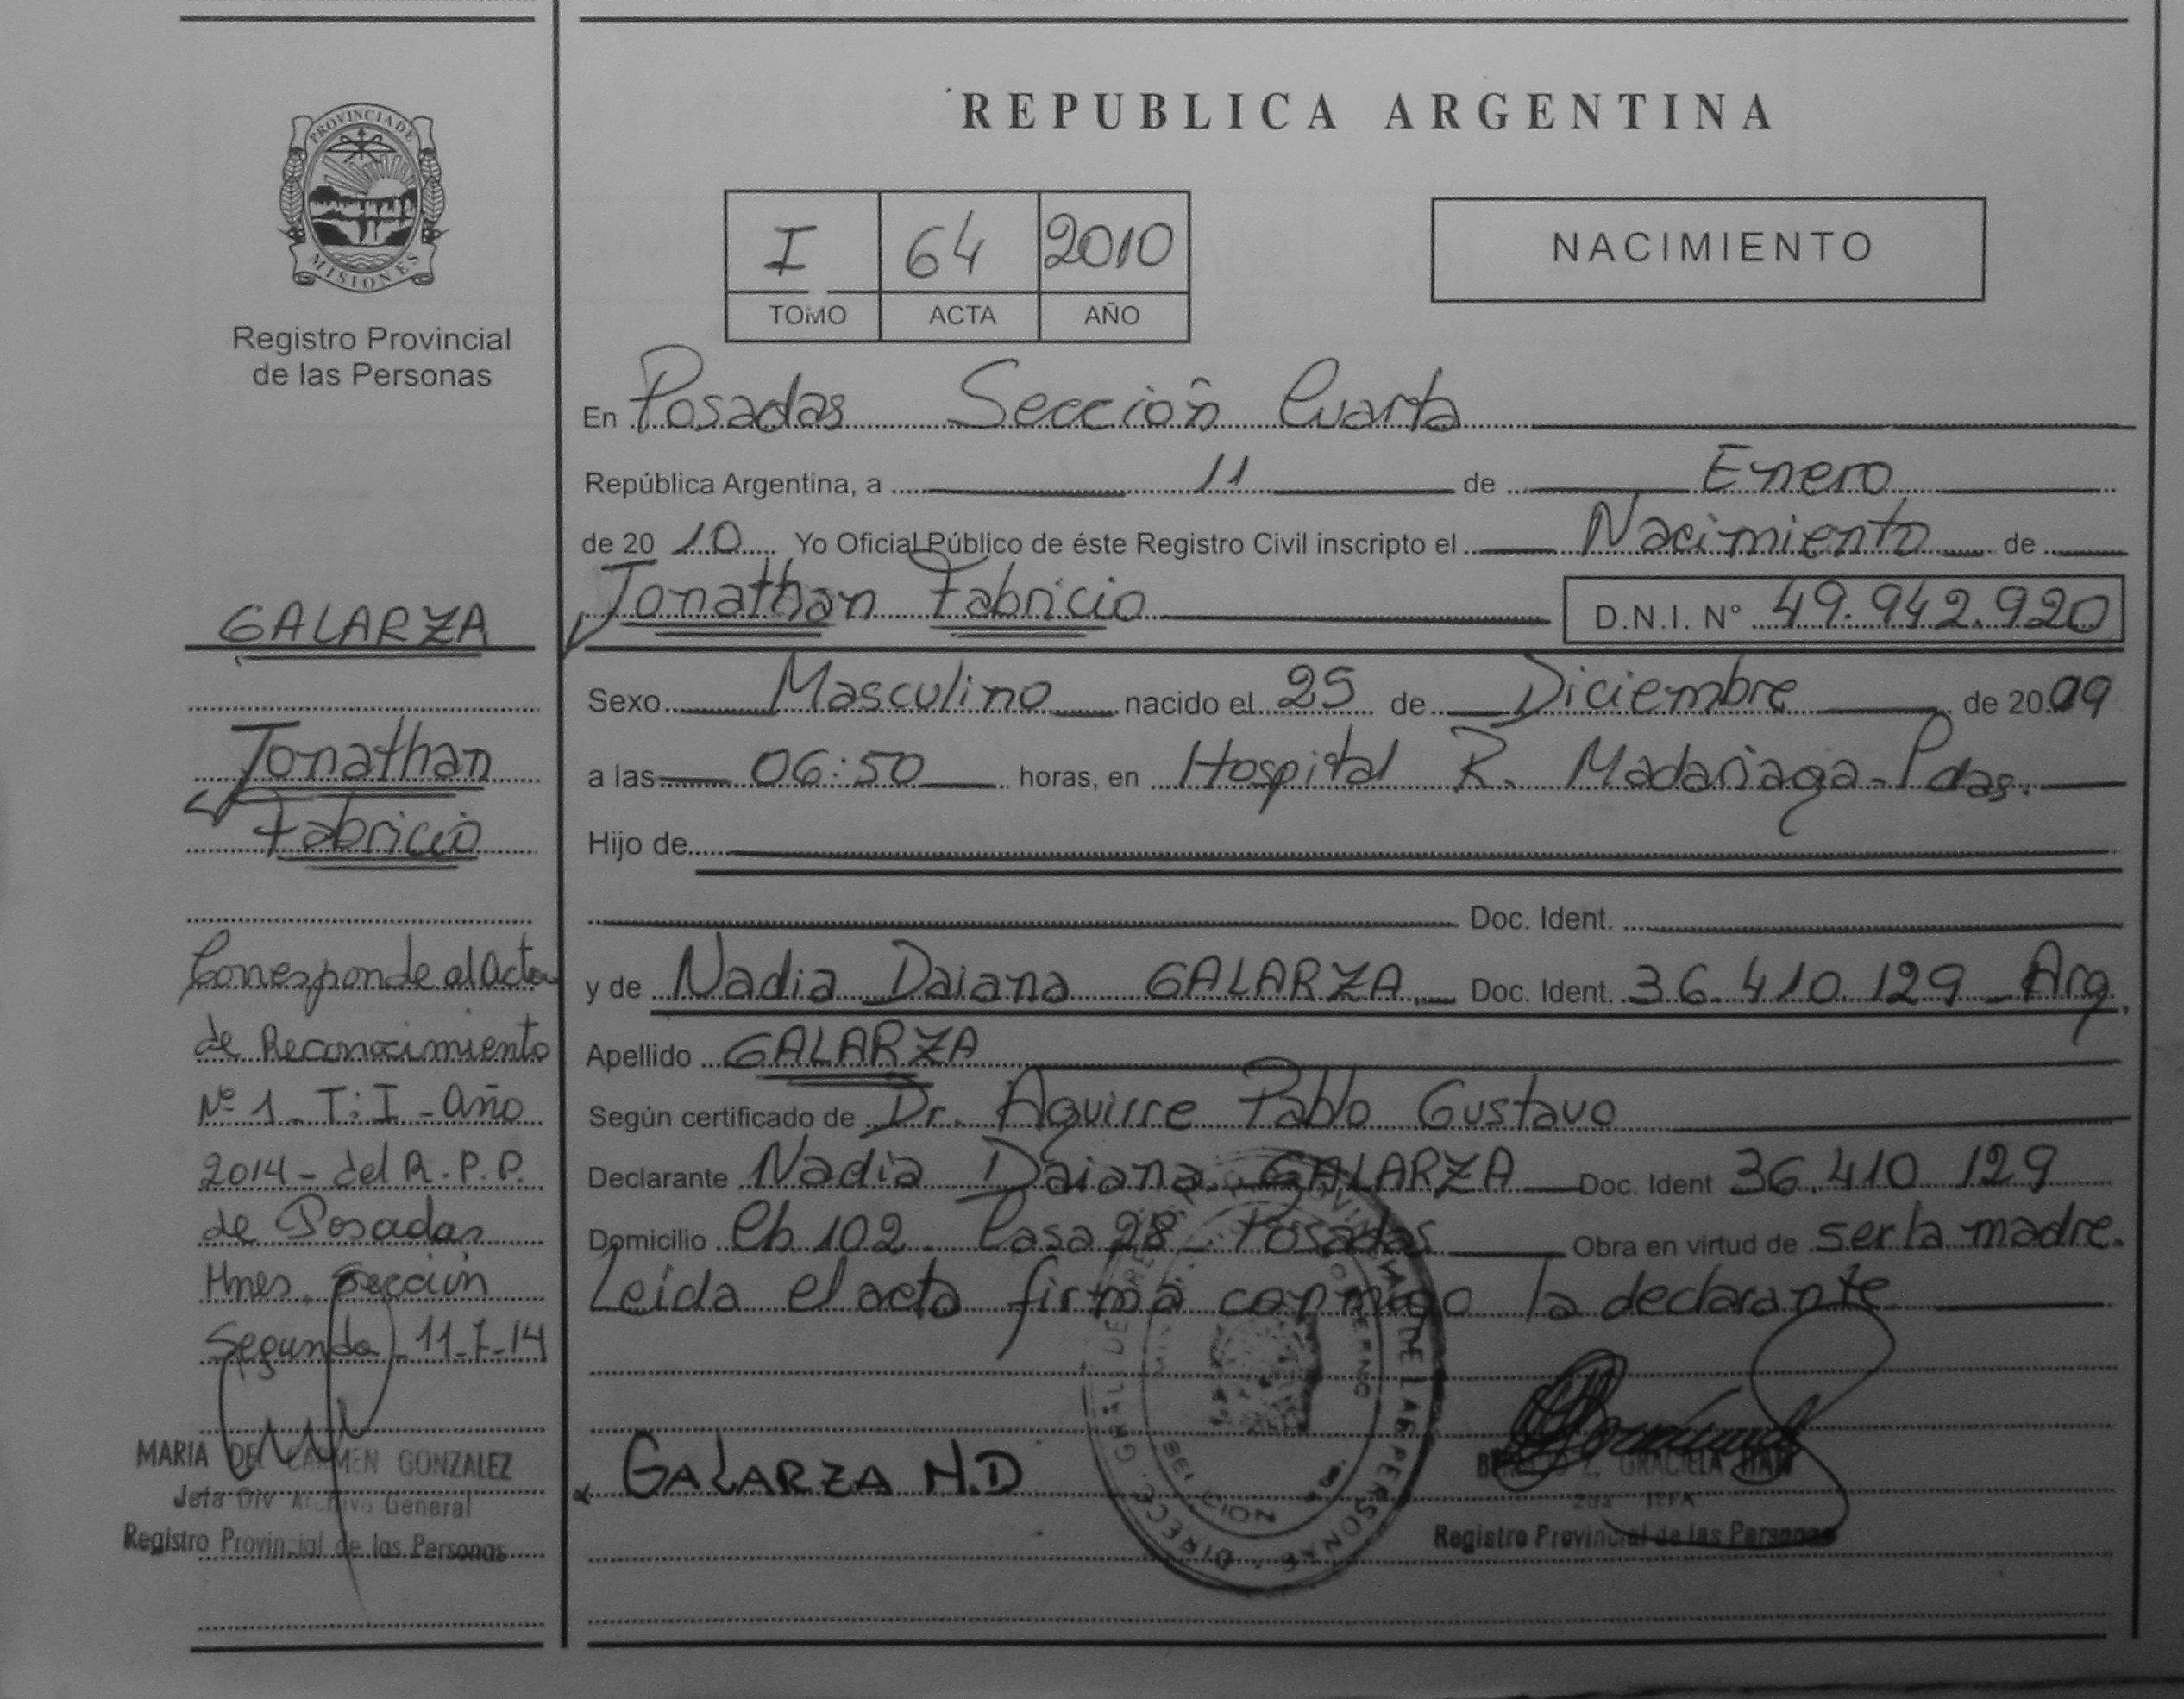 PROVINCIA DE
MISIONES
Registro Provincial
de las Personas
GALARZA
Jonathan
Fabricio
Corresponde al Acta
de Reconocimiento
Nº 1 - T: I - Año
2014 - del R.P.P.
de Posadas
Mnes. Sección
Segunda - 11-7-14
MARIA DEL CARMEN GONZALEZ
Jefa Div Archivo General
Registro Provincial de las Personas
REPUBLICA ARGENTINA
I 64 2010
TOMO ACTA AÑO
NACIMIENTO
En Posadas Sección Cuarta
República Argentina, a 11 de Enero
de 20 10 Yo Oficial Público de éste Registro Civil inscripto el Nacimiento de
Jonathan Fabricio D.N.I. Nº 49.942.920
Sexo Masculino nacido el 25 de Diciembre de 20 09
a las 06:50 horas, en Hospital R. Madariaga - Pdas.
Hijo de
Doc. Ident.
y de Nadia Daiana GALARZA Doc. Ident. 36.410.129 - Arg.
Apellido GALARZA
Según certificado de Dr. Aguirre Pablo Gustavo
Declarante Nadia Daiana GALARZA Doc. Ident 36.410 129
Domicilio Ch. 102 - Casa 28 - Posadas Obra en virtud de ser la madre.
Leida el acta firma conmigo la declarante
GALARZA N.D
GRACIELA
Registro Provincial de las Personas